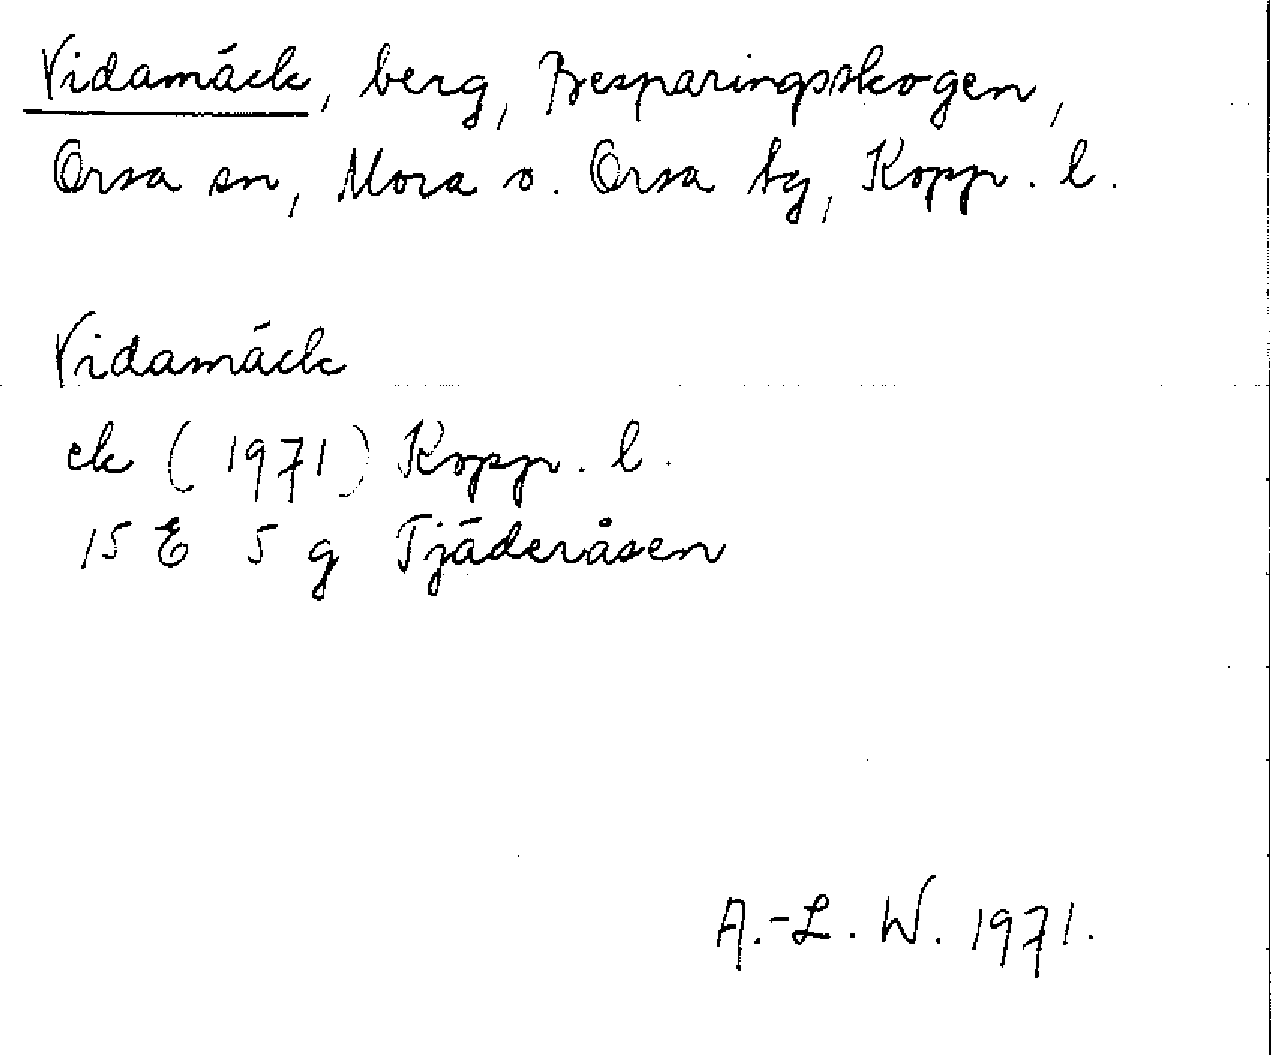 Vidamäck, berg, Besparingsskogen,
Orsa sn, Mora o. Orsa tg, Kopp. l.
Vidamäck
ek (1971) Kopp. l.
15 E 5 g Tjäderåsen
A.-L. W. 1971.